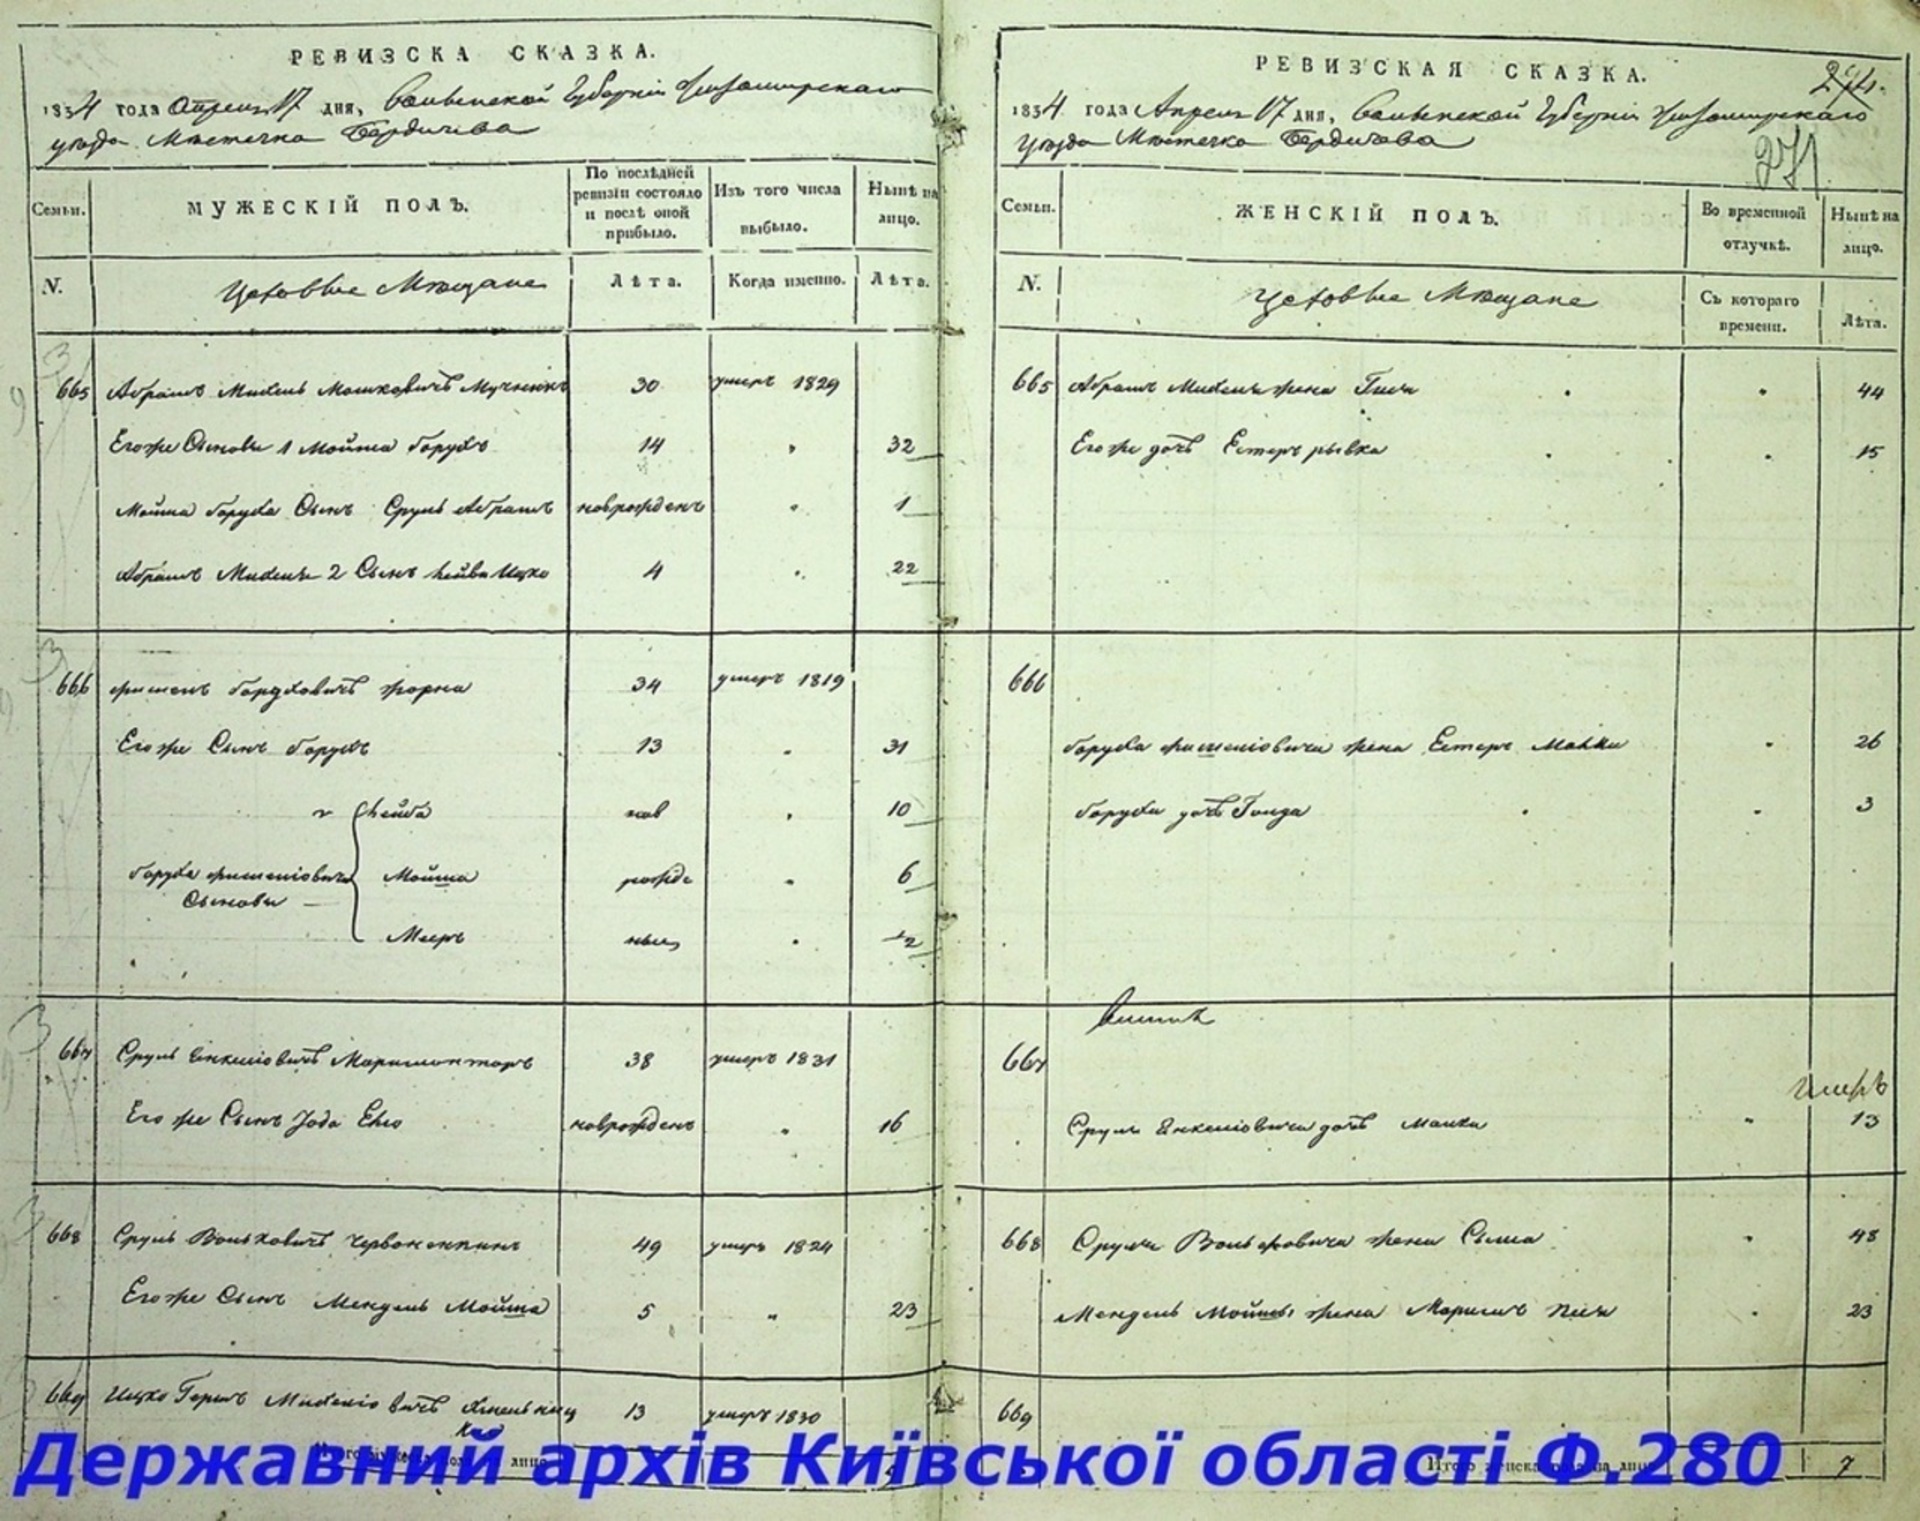 РЕВИЗСКА СКАЗКА.
1834 года Апреля 17 дня, Волынской Губернии Житомирскаго
уезда Местечка Бердичева
Семьи.
МУЖЕСКІЙ ПОЛЪ.
По послѣдней ревизіи состояло и послѣ оной прибыло.
Изъ того числа выбыло.
Нынѣ на лицо.
N.
Мѣщане
Лѣта.
Когда именно.
Лѣта.
665 Абрамъ Михель Мошковичъ 30 умеръ 1829
Егоже Сыновья 1 Мошка Борухъ 14 " 32
Мошка Боруха Сынъ Сруль Абрамъ новрожденъ " 1
Абрамъ Михеля 2 Сынъ Лейба Ицко 4 " 22
666 Боруховичъ 34 умеръ 1819
Егоже Сынъ Борухъ 13 " 31
Лейба нов " 10
Боруха Сыновья Мошка рожде " 6
Мееръ ные " 1/2
667 Сруль Янкелiовичъ 38 умеръ 1831
Егоже Сынъ новрожденъ " 16
668 Сруль Вольковичъ 49 умеръ 1824
Егоже Сынъ Мендель Мошка 5 " 23
669 Ицко Гершъ Михелiовичъ 13 умеръ 1830
РЕВИЗСКАЯ СКАЗКА.
271
1834 года Апреля 17 дня, Волынской Губерніи Житомирскаго
уезда Местечка Бердичева
Семьи.
ЖЕНСКІЙ ПОЛЪ.
Во временной отлучкѣ.
Нынѣ на лицо.
N.
Мѣщане
Съ котораго времени.
Лѣта.
665 Абрамъ Михеля жена " 44
Егоже дочь Естеръ рывка " 15
666
Боруха жена Естеръ Малка " 26
Боруха дочь Голда " 3
667
умеръ
Сруля Янкелiовича дочь Малка " 13
668 Сруля Вольфовича жена Сыма " 48
Мендель Мошки жена " 23
669
Итого женска пола на лицо 7
Державний архів Київської області Ф.280